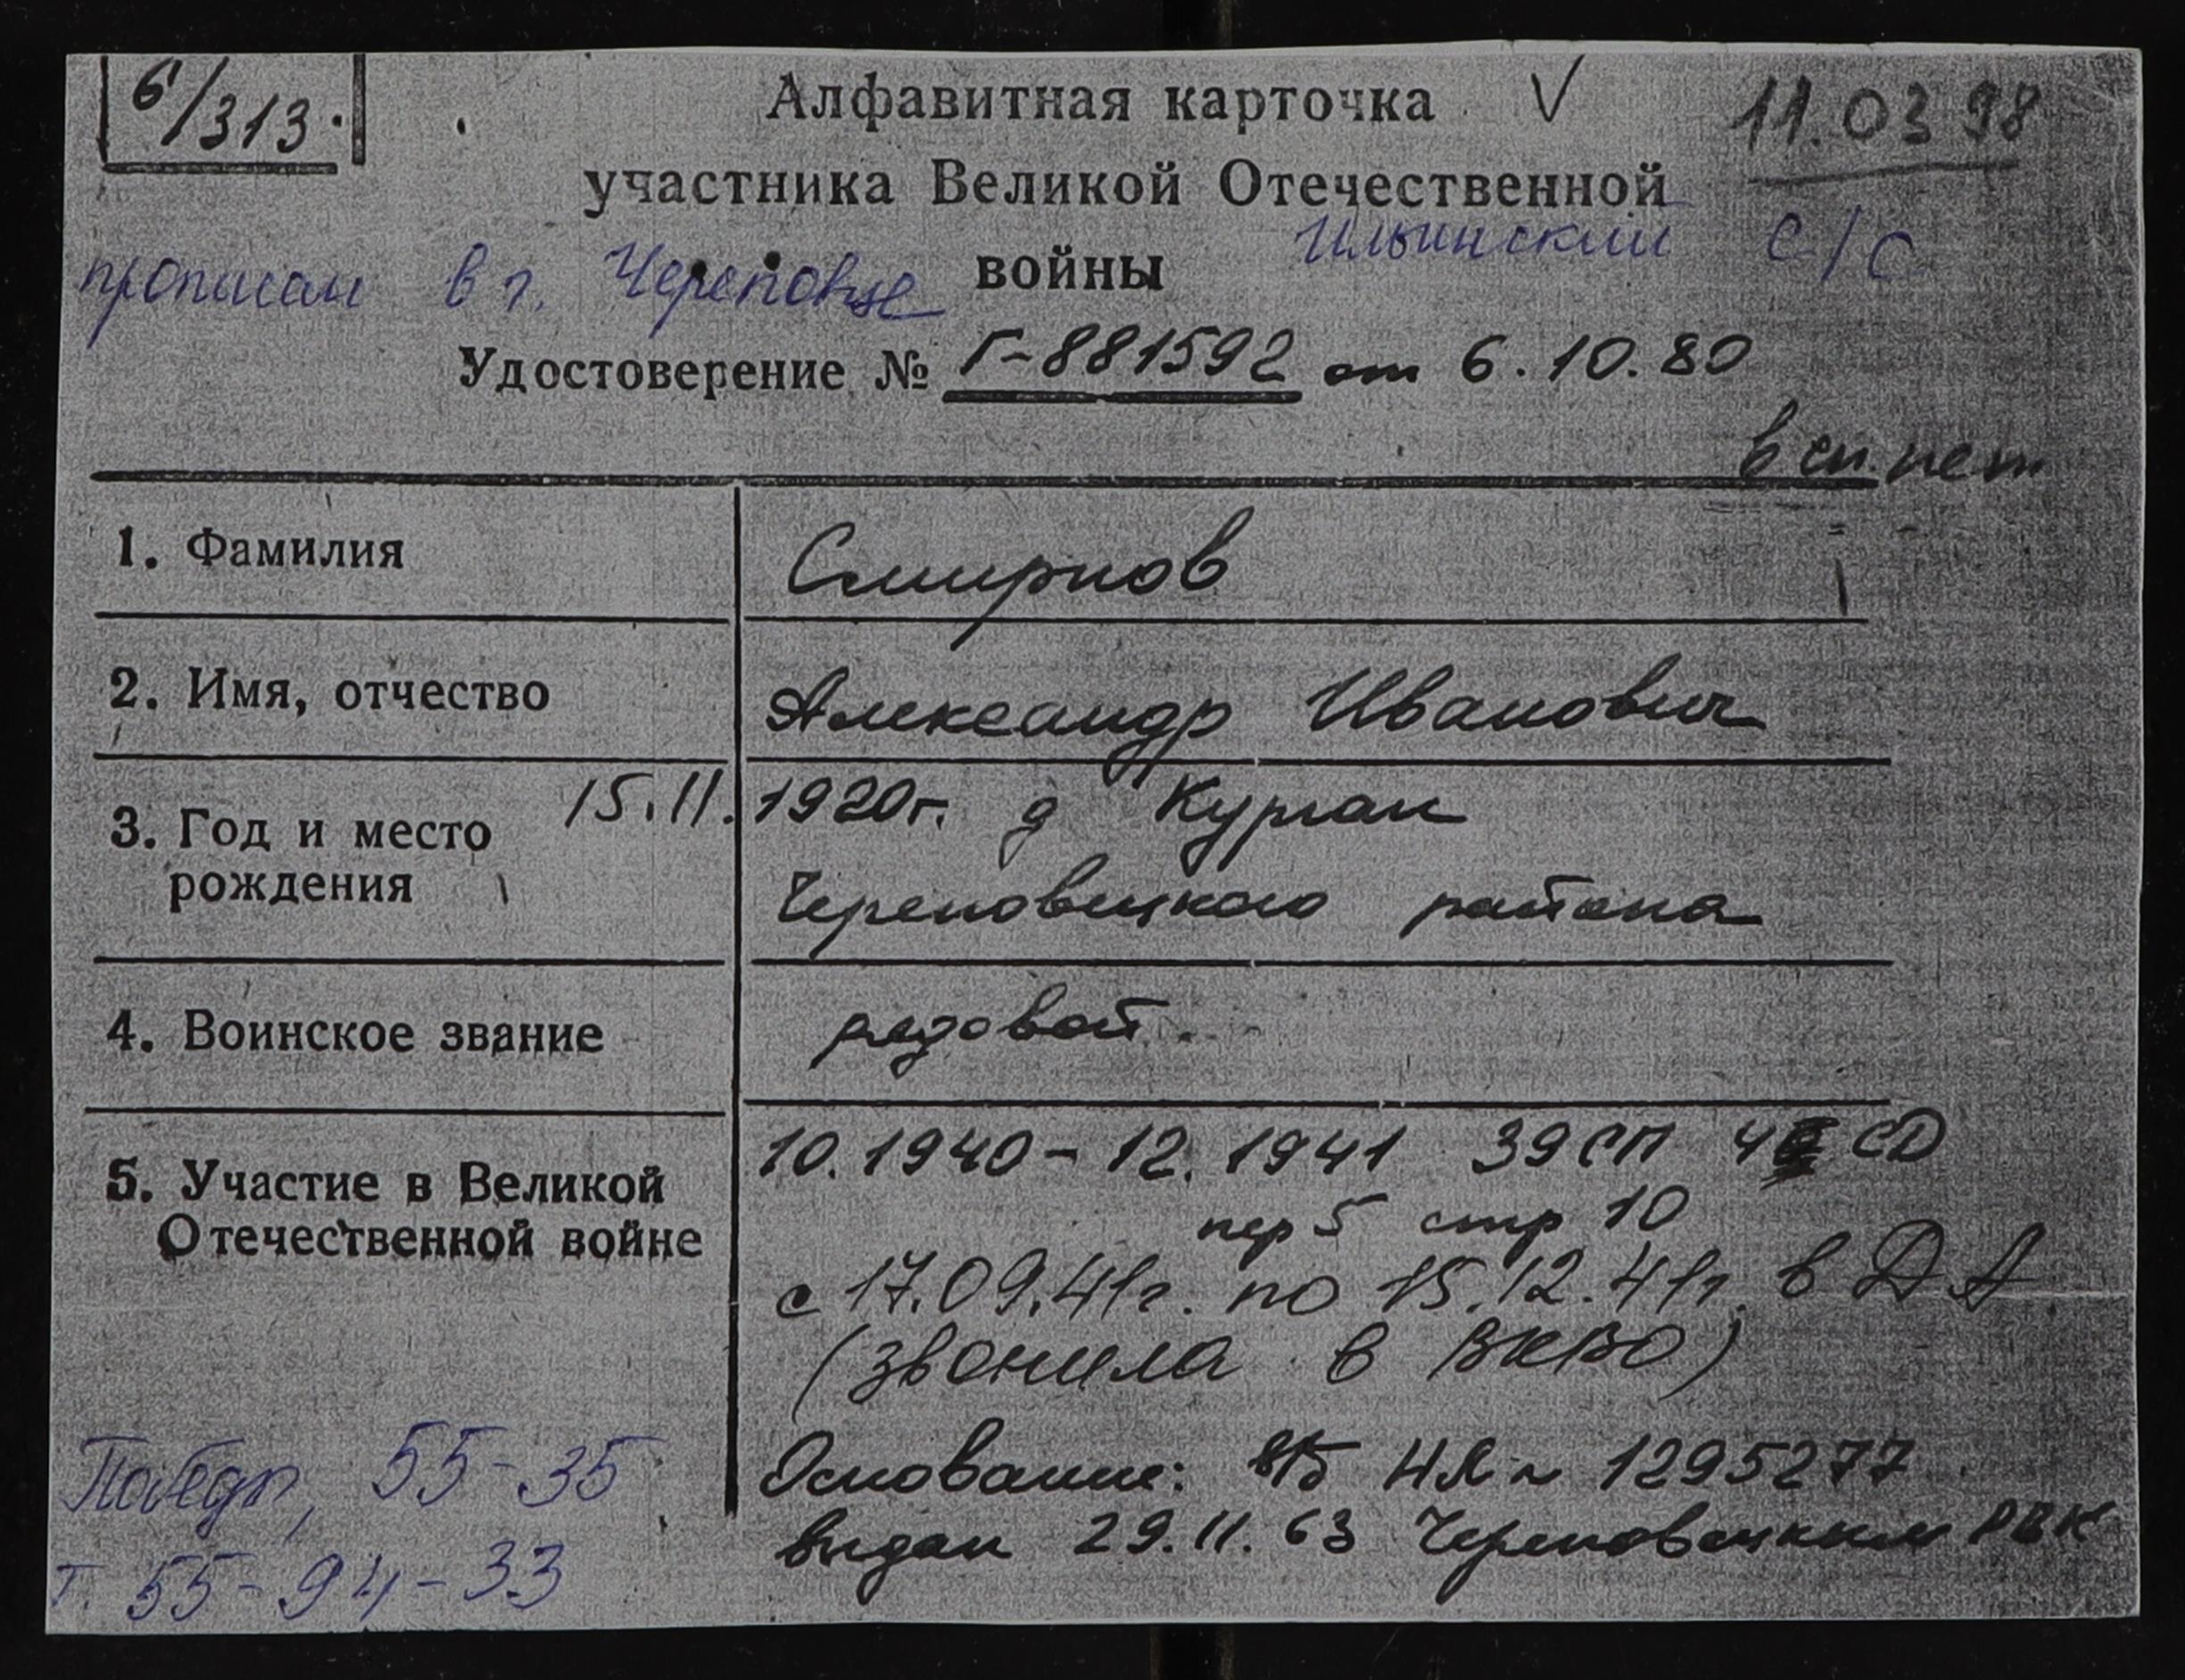 6/313.
Алфавитная карточка V 11.03 98
участника Великой Отечественной
войны
Ильинский с/с
прописан в г. Череповце
Удостоверение № Г-881592 от 6.10.80
в сп. нет
1. Фамилия Смирнов
2. Имя, отчество Александр Иванович
3. Год и место 15.11. 1920г. д Курган
рождения Череповецкого района
4. Воинское звание рядовой
5. Участие в Великой 10.1940 - 12.1941 39 СП 4 СД
Отечественной войне пер 5 стр 10
с 17.09.41г. по 15.12.41г. в ДА
(звонила в ВКВО)
Основание: в/б НЯ № 1295277
выдан 29.11.63 Череповецким РВК
Победы, 55-35
т. 55-94-33